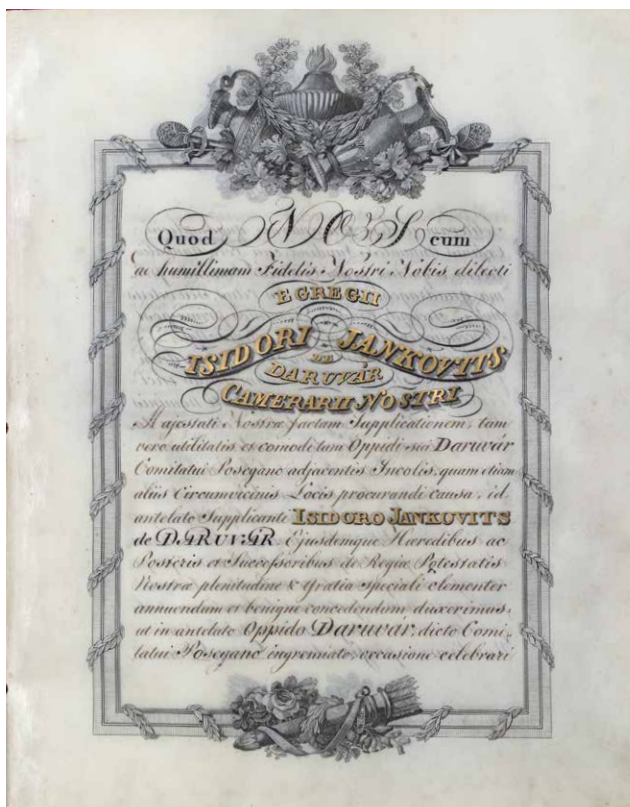 Quod NOS cum
ac humillimam Fidelis Nostri Nobis dilecti
EGREGII
ISIDORI JANKOVITS
DE
DARUVÁR
CAMERARII NOSTRI
Majestati Nostræ factam Supplicationem, tam
vero utilitatis et comodi tam Oppidi sui Daruvár
Comitatui Posegano adjacentis Incolis, quam etiam
aliis Circumvicinis Locis procurandi causa, id
antelato Supplicanti ISIDORO JANKOVITS
de DARUVAR Ejusdemque Hæredibus ac
Posteris et Successoribus de Regiæ Potestatis
Nostræ plenitudine & Gratia speciali clementer
annuendum et benigne concedendum duxerimus,
ut in antelato Oppido Daruvár, dicto Comi-
tatui Posegano ingremiato, occasione celebrari